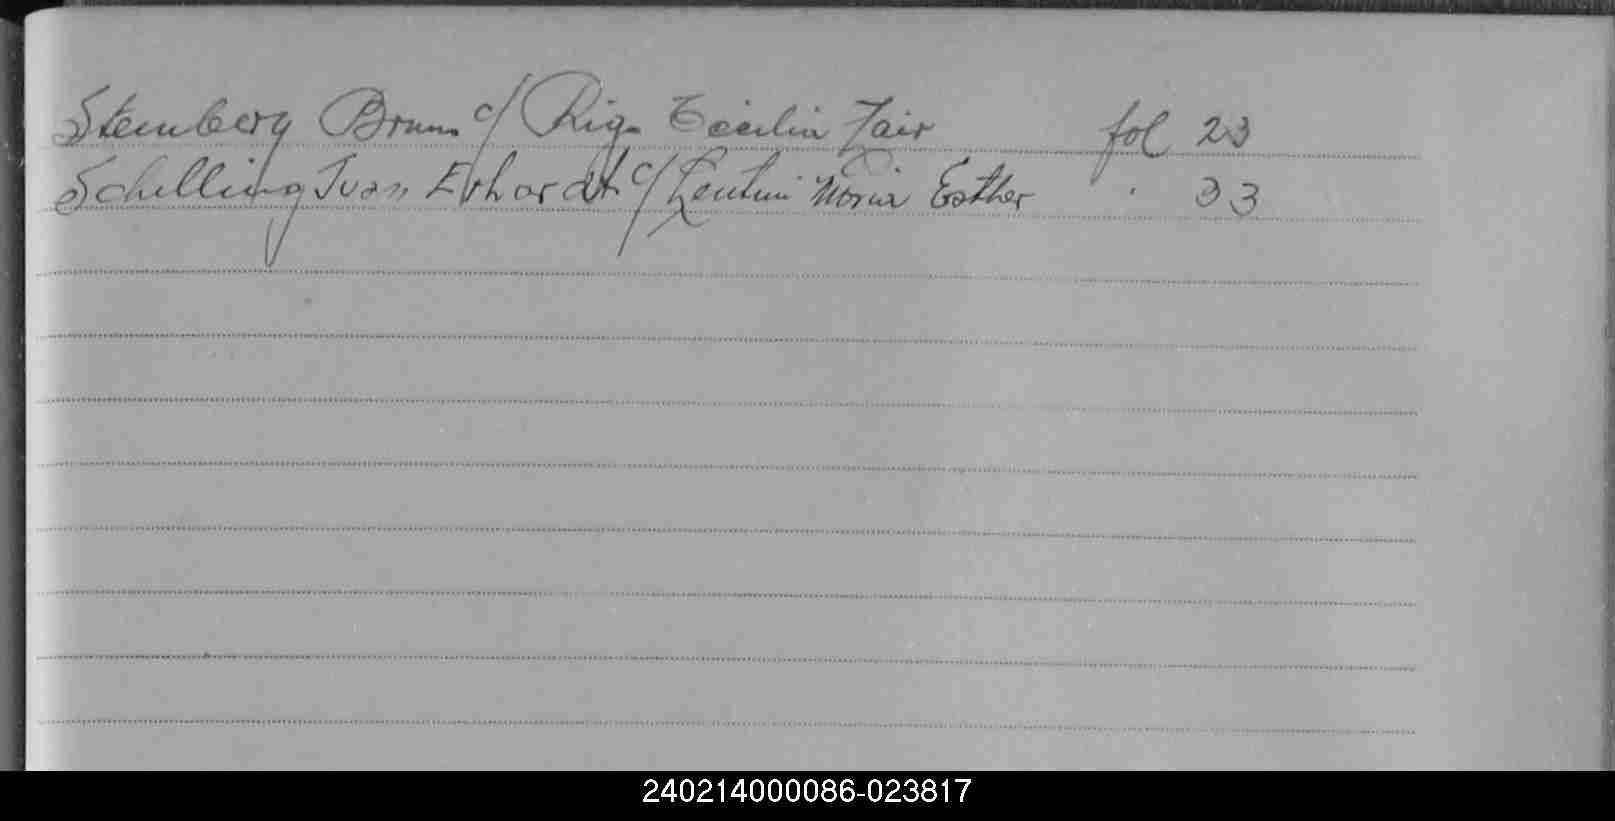 Steinberg Bruno c/ Riga Cecilia Zair fol 23
Schilling Juan Erhardt c/ Lentini Maria Esther " 33
240214000086-023817